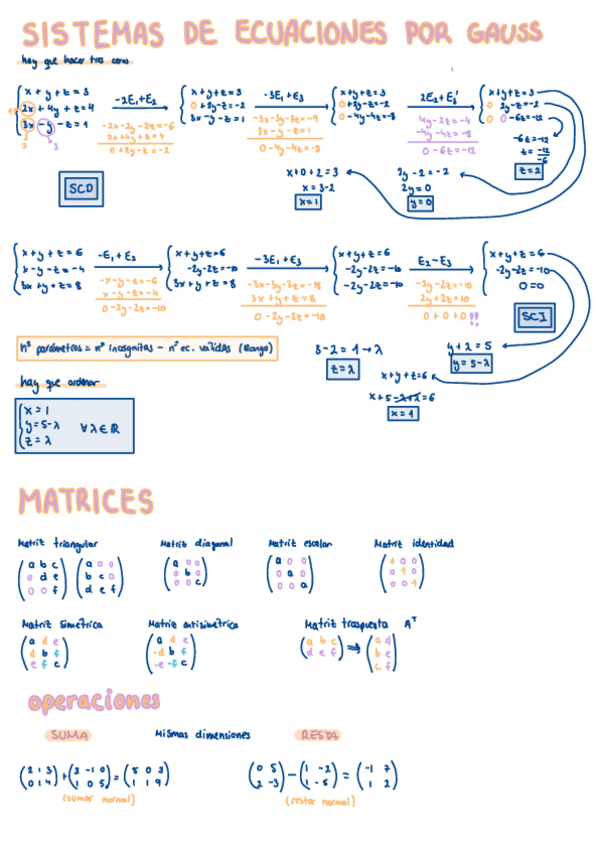 SISTEMAS DE ECUACIONES POR GAUSS
hay que hacer tres ceros
x + y + z = 3
2x + 4y + z = 4
3x - y - z = 1
-2E₁+E₂
-2x-2y-2z=-6
2x+4y+z=4
0+2y-z=-2
x+y+z=3
0+2y-z=-2
3x-y-z=1
-3E₁+E₃
-3x-3y-3z=-9
3x-y-z=1
0-4y-4z=-8
x+y+z=3
0+2y-z=-2
0-4y-4z=-8
2E₂+E₃'
4y-2z=-4
-4y-4z=-8
0-6z=-12
x+y+z=3
0 2y-z=-2
0 0 -6z=-12
-6z=-12
z=-12/-6
z=2
2y-2=-2
2y=0
y=0
x+0+2=3
x=3-2
x=1
SCD
x+y+z=6
x-y-z=-4
3x+y+z=8
-E₁+E₂
-x-y-z=-6
x-y-z=-4
0-2y-2z=-10
x+y+z=6
-2y-2z=-10
3x+y+z=8
-3E₁+E₃
-3x-3y-3z=-18
3x+y+z=8
0-2y-2z=-10
x+y+z=6
-2y-2z=-10
-2y-2z=-10
E₂-E₃
-2y-2z=-10
2y+2z=10
0+0+0 !!
x+y+z=6
-2y-2z=-10
0=0
SCI
nº parámetros = nº incognitas - nº ec. validas (Rango)
3-2=1→λ
z=λ
y+λ=5
y=5-λ
x+y+z=6
x+5-λ+λ=6
x=1
hay que ordenar
x=1
y=5-λ
z=λ
∀λ∈ℝ
MATRICES
Matriz triangular
a b c
0 d e
0 0 f
a 0 0
b c 0
d e f
Matriz diagonal
a 0 0
0 b 0
0 0 c
Matriz escalar
a 0 0
0 a 0
0 0 a
Matriz identidad
1 0 0
0 1 0
0 0 1
Matriz simétrica
a d e
d b f
e f c
Matriz antisimétrica
a d e
-d b f
-e -f c
Matriz traspuesta Aᵀ
a b c
d e f
⇒
a d
b e
c f
operaciones
SUMA
Mismas dimensiones
RESTA
(2 1 3) + (3 -1 0) = (5 0 3)
(0 1 4) (1 0 5) (1 1 9)
(sumar normal)
(0 5) - (1 -2) = (-1 7)
(2 -3) (1 -5) (1 2)
(restar normal)